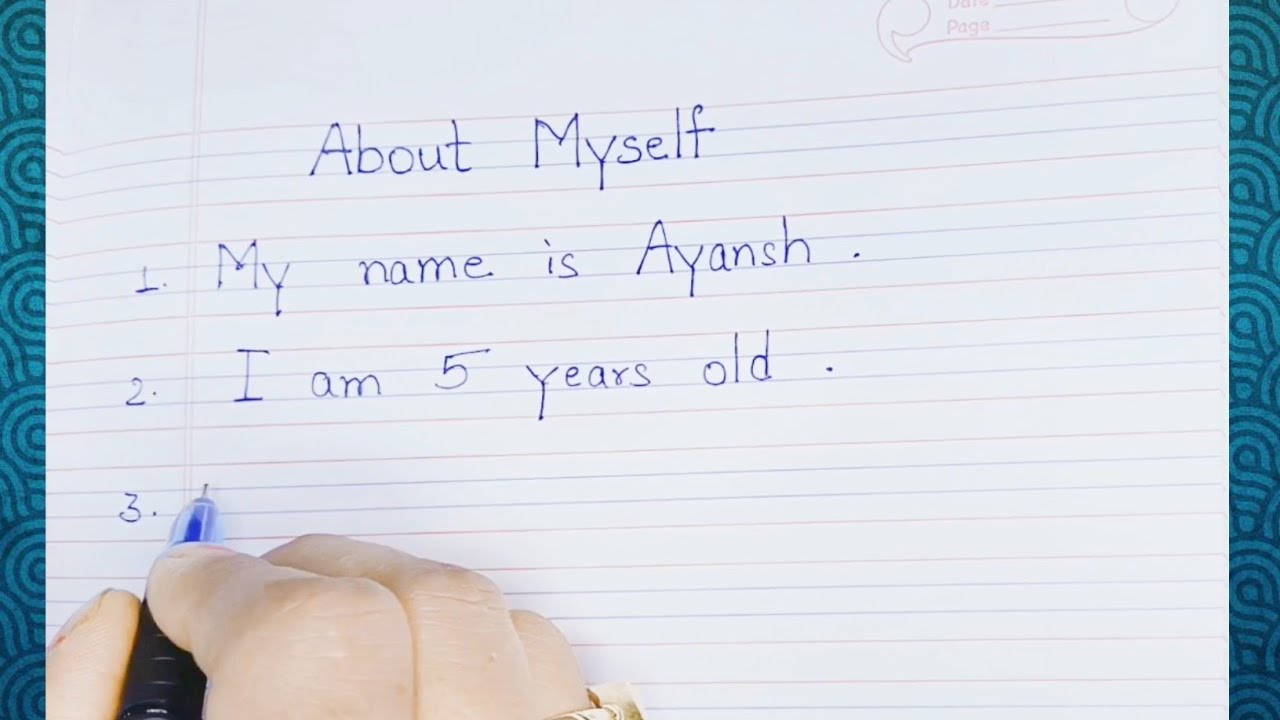 Date
Page
About Myself
1. My name is Ayansh.
2. I am 5 years old.
3.